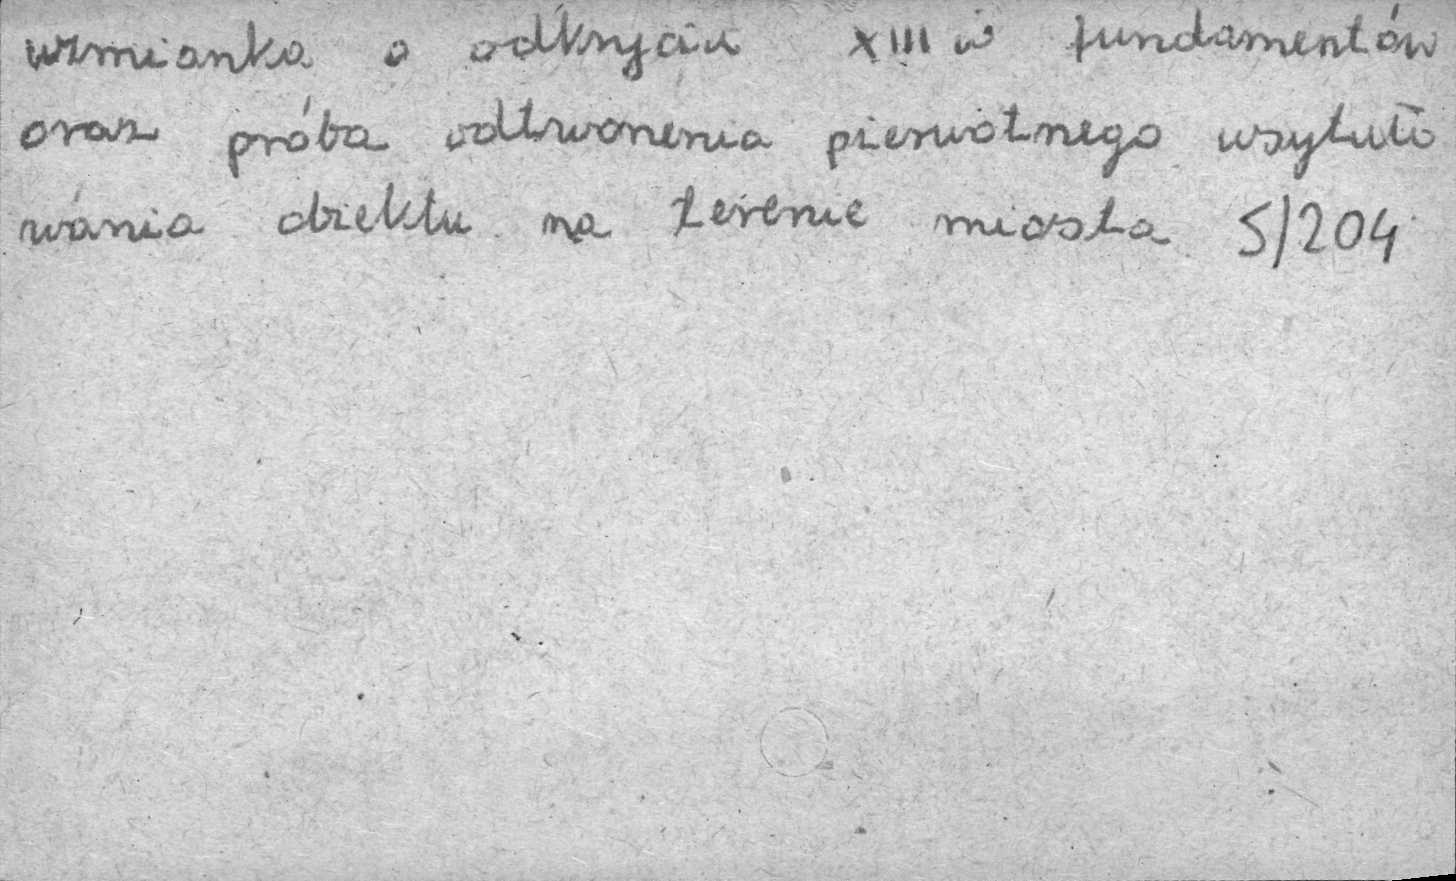 wzmianka o odkryciu XIII w fundamentów
oraz próba odtworzenia pierwotnego usytuo
wania obiektu na terenie miasta S/204